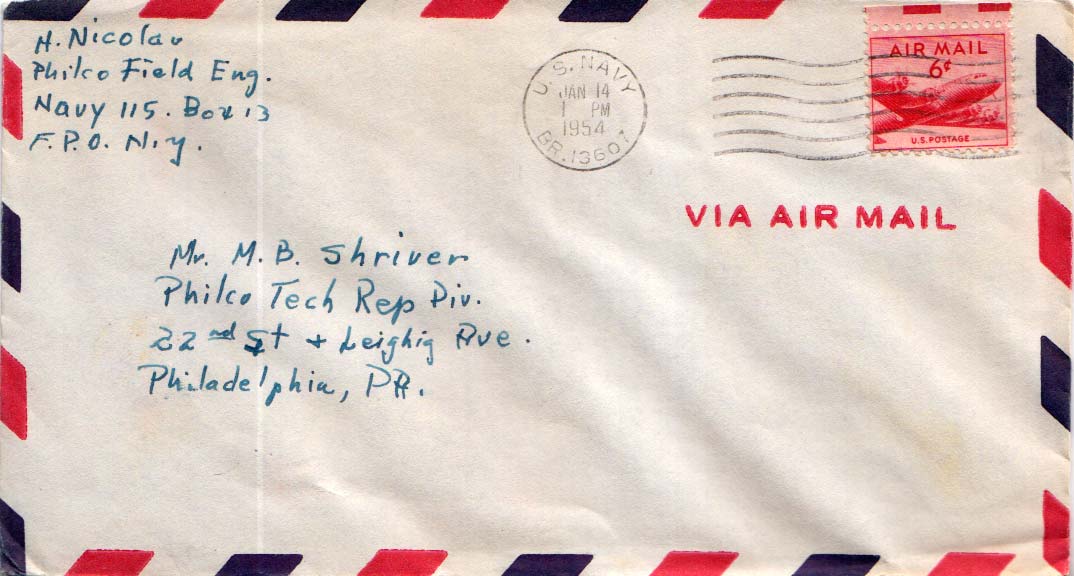 H. Nicolau
Philco Field Eng.
Navy 115. Box 13
F.P.O. N.Y.
U.S. NAVY
JAN 14
1 PM
1954
BR. 13607
AIR MAIL
6¢
U.S. POSTAGE
VIA AIR MAIL
Mr. M.B. Shriver
Philco Tech Rep Div.
22nd St + Leighig Ave.
Philadelphia, PA.